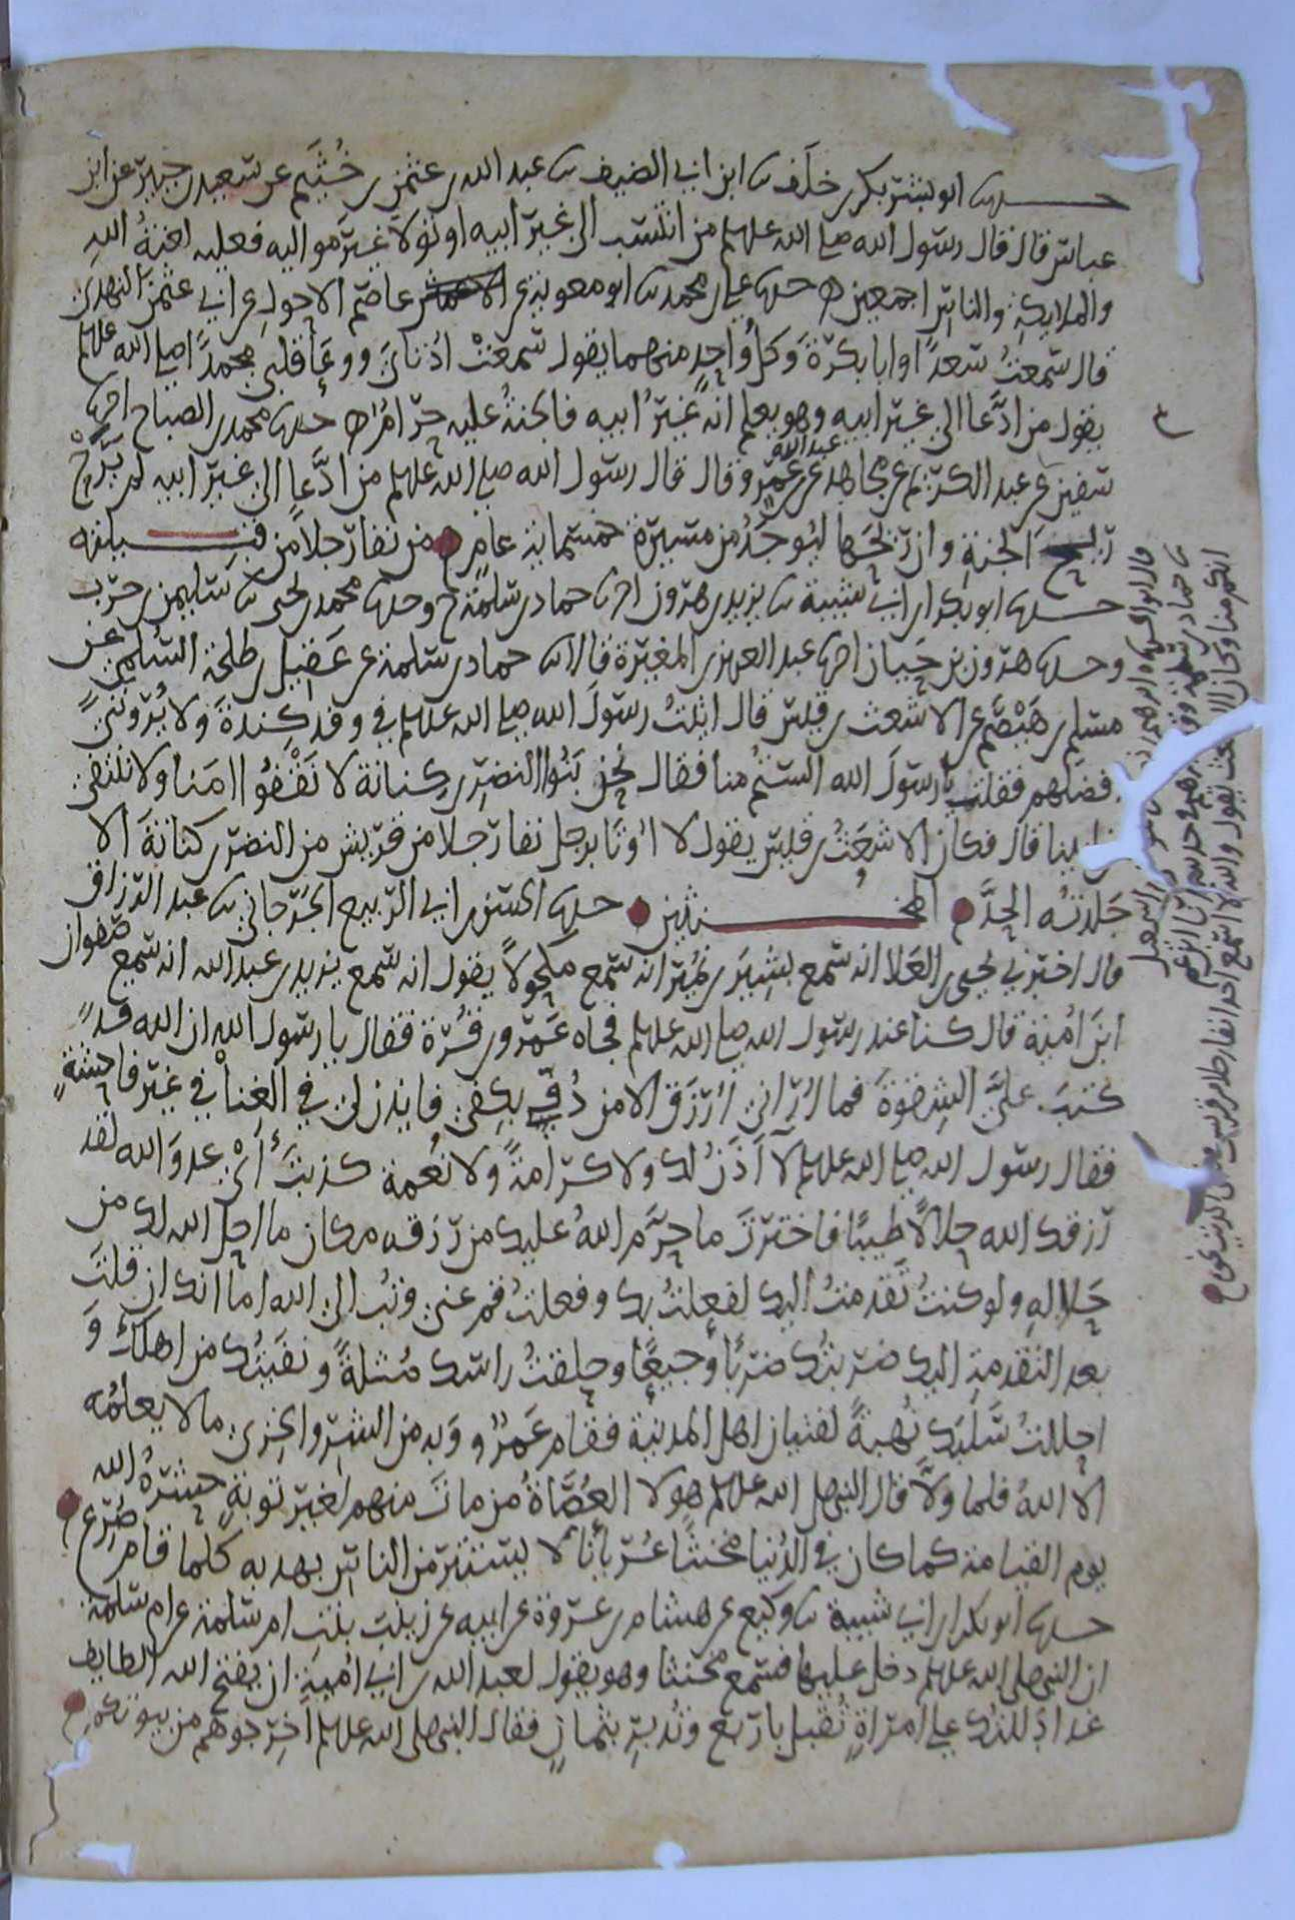 حدثنا ابو بشر بكر بن خلف ثنا ابن ابي الضيف ثنا عبد الله بن عثمن بن خثيم عن سعيد بن جبير عن ابن
عباس قال قال رسول الله صلى الله عليه وسلم من انتسب الى غير ابيه او تولا غير مواليه فعليه لعنة الله
والملايكة والناس اجمعين حدثنا علي بن محمد ثنا ابو معوية عن عاصم الاحول عن ابي عثمن النهدي
قال سمعت سعدا وابا بكرة وكل واحد منهما يقول سمعت اذناي ووعا قلبي محمدا صلى الله عليه وسلم
يقول من ادعا الى غير ابيه وهو يعلم انه غير ابيه فالجنة عليه حرام حدثنا محمد بن الصباح انا
سفين عن عبد الكريم عن مجاهد عن عبد الله بن عمرو قال قال رسول الله صلى الله عليه وسلم من ادعا الى غير ابيه لم يرح
ريح الجنة وان ريحها ليوجد من مسيرة خمسماية عام من نفا رجلا من قبيلته
حدثنا ابو بكر بن ابي شيبة ثنا يزيد بن هرون انا حماد بن سلمة ح وحدثنا محمد بن يحيى ثنا سليمن بن حرب
وحدثنا هرون بن حيان انا عبد العزيز بن المغيرة قالا ثنا حماد بن سلمة عن عقيل بن طلحة السلمي عن
مسلم بن هيضم عن الاشعث بن قيس قال اتيت رسول الله صلى الله عليه وسلم في وفد كندة ولا يروني
افضلهم فقلت يا رسول الله الستم منا فقال نحن بنوا النضر بن كنانة لا نقفوا امنا ولا ننتفي
من ابينا قال فكان الاشعث بن قيس يقول لا اوتا برجل نفا رجلا من قريش من النضر بن كنانة الا
جلدته الحد المخنثين حدثنا الحسن بن ابي الربيع الجرجاني ثنا عبد الرزاق
قال اخبرني يحيى بن العلا انه سمع بشر بن نمير انه سمع مكحولا يقول انه سمع يزيد بن عبد الله انه سمع صفوان
ابن امية قال كنا عند رسول الله صلى الله عليه وسلم فجاه عمرو بن قرة فقال يا رسول الله ان الله قد
كتب علي الشقوة فما اراني ارزق الا من دفي بكفي فايذن لي في الغنا في غير فاحشة
فقال رسول الله صلى الله عليه وسلم لا آذن لك ولا كرامة ولا نعمة كذبت اي عدو الله لقد
رزقك الله حلالا طيبا فاخترت ما حرم الله عليك من رزقه مكان ما احل الله لك من
حلاله ولو كنت تقدمت اليك لفعلت بك وفعلت قم عني وتب الى الله اما انك ان فعلت
بعد التقدمة اليك ضربتك ضربا وجيعا وحلقت راسك مثلة ونفيتك من اهلك و
احللت سلبك نهبة لفتيان اهل المدينة فقام عمرو وبه من الشر والخزي ما لا يعلمه
الا الله فلما ولا قال النبي صلى الله عليه وسلم هولا العصاة من مات منهم لغير توبة حشره الله
يوم القيامة كما كان في الدنيا مخنثا عريانا لا يستتر من الناس بهدبه كلما قام صرع
حدثنا ابو بكر بن ابي شيبة ثنا وكيع عن هشام بن عروة عن ابيه عن زينب بنت ام سلمة عن ام سلمة
ان النبي صلى الله عليه وسلم دخل عليها فسمع مخنثا وهو يقول لعبد الله بن ابي امية ان يفتح الله الطايف
غدا دللتك على امراة تقبل باربع وتدبر بثمان فقال النبي صلى الله عليه وسلم اخرجوهم من بيوتكم